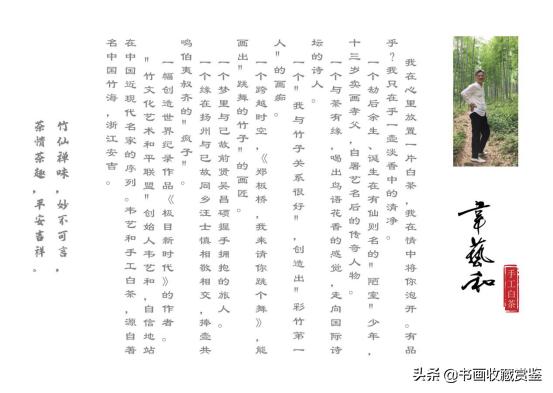 韋藝和
手工白茶
我在心里放置一片白茶，我在情中将你泡开。有品
乎？我只在乎一壶淡香中的清净。
一个劫后余生、诞生在有仙则名的"陋室"少年，
十三岁卖画孝父，自署艺名后的传奇人物。
一个与茶有缘，喝出鸟语花香的感觉，走向国际诗
坛的诗人。
一个"我与竹子关系很好"，创造出"彩竹第一
人"的画痴。
一个跨越时空，《郑板桥，我来请你跳个舞》，能
画出"跳舞的竹子"的画匠。
一个梦里与已故前贤吴昌硕握手拥抱的旅人。
一个缘在扬州与已故同乡汪士慎相敬相交，捧壶共
鸣伯夷叔齐的"疯子"。
一幅创造世界纪录作品《极目新时代》的作者。
"竹文化艺术和平联盟"创始人韦艺和，自信地站
在中国近现代名家的序列。韦艺和手工白茶，源自著
名中国竹海，浙江安吉。
竹仙禅味，妙不可言，
茶情茶趣，平安吉祥。
头条 @书画收藏赏鉴